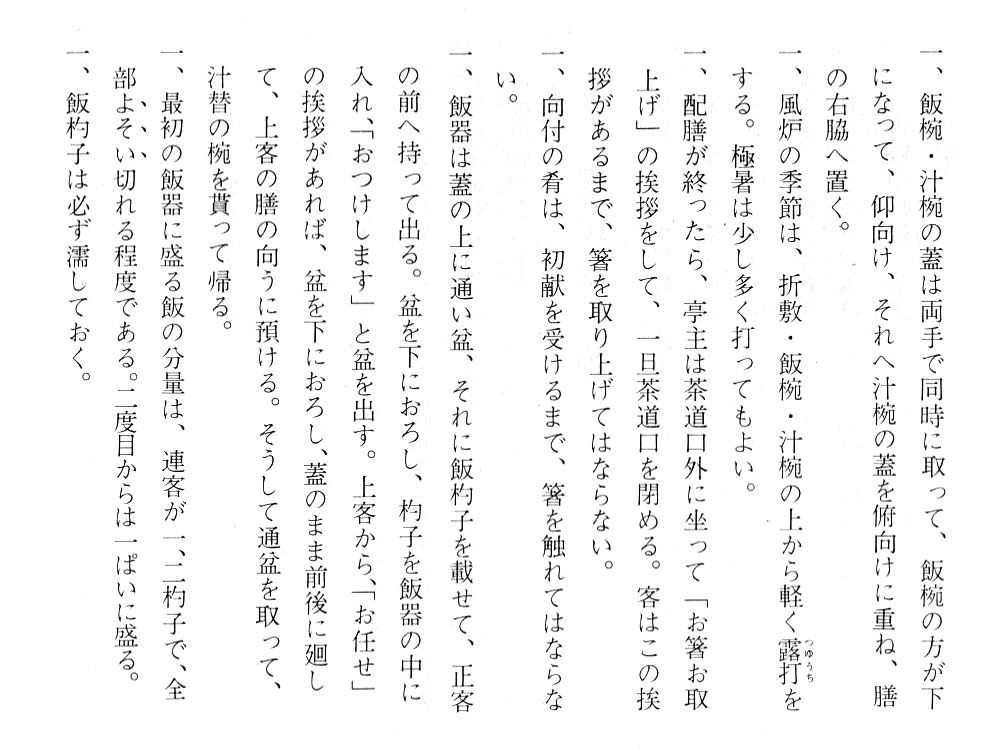 一、飯椀・汁椀の蓋は両手で同時に取って、飯椀の方が下
になって、仰向け、それへ汁椀の蓋を俯向けに重ね、膳
の右脇へ置く。
一、風炉の季節は、折敷・飯椀・汁椀の上から軽く露打を
つゆうち
する。極暑は少し多く打ってもよい。
一、配膳が終ったら、亭主は茶道口外に坐って「お箸お取
上げ」の挨拶をして、一旦茶道口を閉める。客はこの挨
拶があるまで、箸を取り上げてはならない。
一、向付の肴は、初献を受けるまで、箸を触れてはならな
い。
一、飯器は蓋の上に通い盆、それに飯杓子を載せて、正客
の前へ持って出る。盆を下におろし、杓子を飯器の中に
入れ、「おつけします」と盆を出す。上客から、「お任せ」
の挨拶があれば、盆を下におろし、蓋のまま前後に廻し
て、上客の膳の向うに預ける。そうして通盆を取って、
汁替の椀を貰って帰る。
一、最初の飯器に盛る飯の分量は、連客が一、二杓子で、全
部よそい切れる程度である。二度目からは一ぱいに盛る。
一、飯杓子は必ず濡しておく。